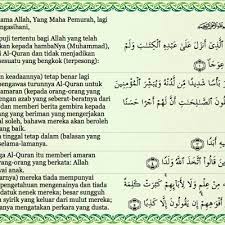 ama Allah, Yang Maha Pemurah, lagi
ngasihani,
puji tertentu bagi Allah yang telah
kan kepada hambaNya (Muhammad),
Al-Quran dan tidak menjadikan
sesuatu yang bengkok (terpesong):
ٱلَّذِىٓ أَنزَلَ عَلَىٰ عَبْدِهِ ٱلْكِتَٰبَ وَلَمْ
عِوَجَا
n keadaannya) tetap benar lagi
engawas turunnya Al-Quran untuk
amaran (kepada orang-orang yang
engan azab yang seberat-beratnya dari
dan memberi berita gembira kepada
ng yang beriman yang mengerjakan
al soleh, bahawa mereka akan beroleh
ng baik.
بَأْسًا شَدِيدًا مِّن لَّدُنْهُ وَيُبَشِّرَ ٱلْمُؤْمِنِينَ
ٱلصَّٰلِحَٰتِ أَنَّ لَهُمْ أَجْرًا حَسَنًا
tinggal tetap dalam (balasan yang
selama-lamanya.
ga Al-Quran itu memberi amaran
orang-orang yang berkata: Allah
yai anak.
قَالُوا۟ ٱتَّخَذَ ٱللَّهُ وَلَدًا
arnya) mereka tiada mempunyai
pengetahuan mengenainya dan tiada
datuk nenek mereka; besar sungguh
syirik yang keluar dari mulut mereka;
mengatakan perkara yang dusta.
مِنْ عِلْمٍ وَلَا لِءَابَآئِهِمْ كَبُرَتْ كَلِمَةً
أَفْوَٰهِهِمْ إِن يَقُولُونَ إِلَّا كَذِبًا